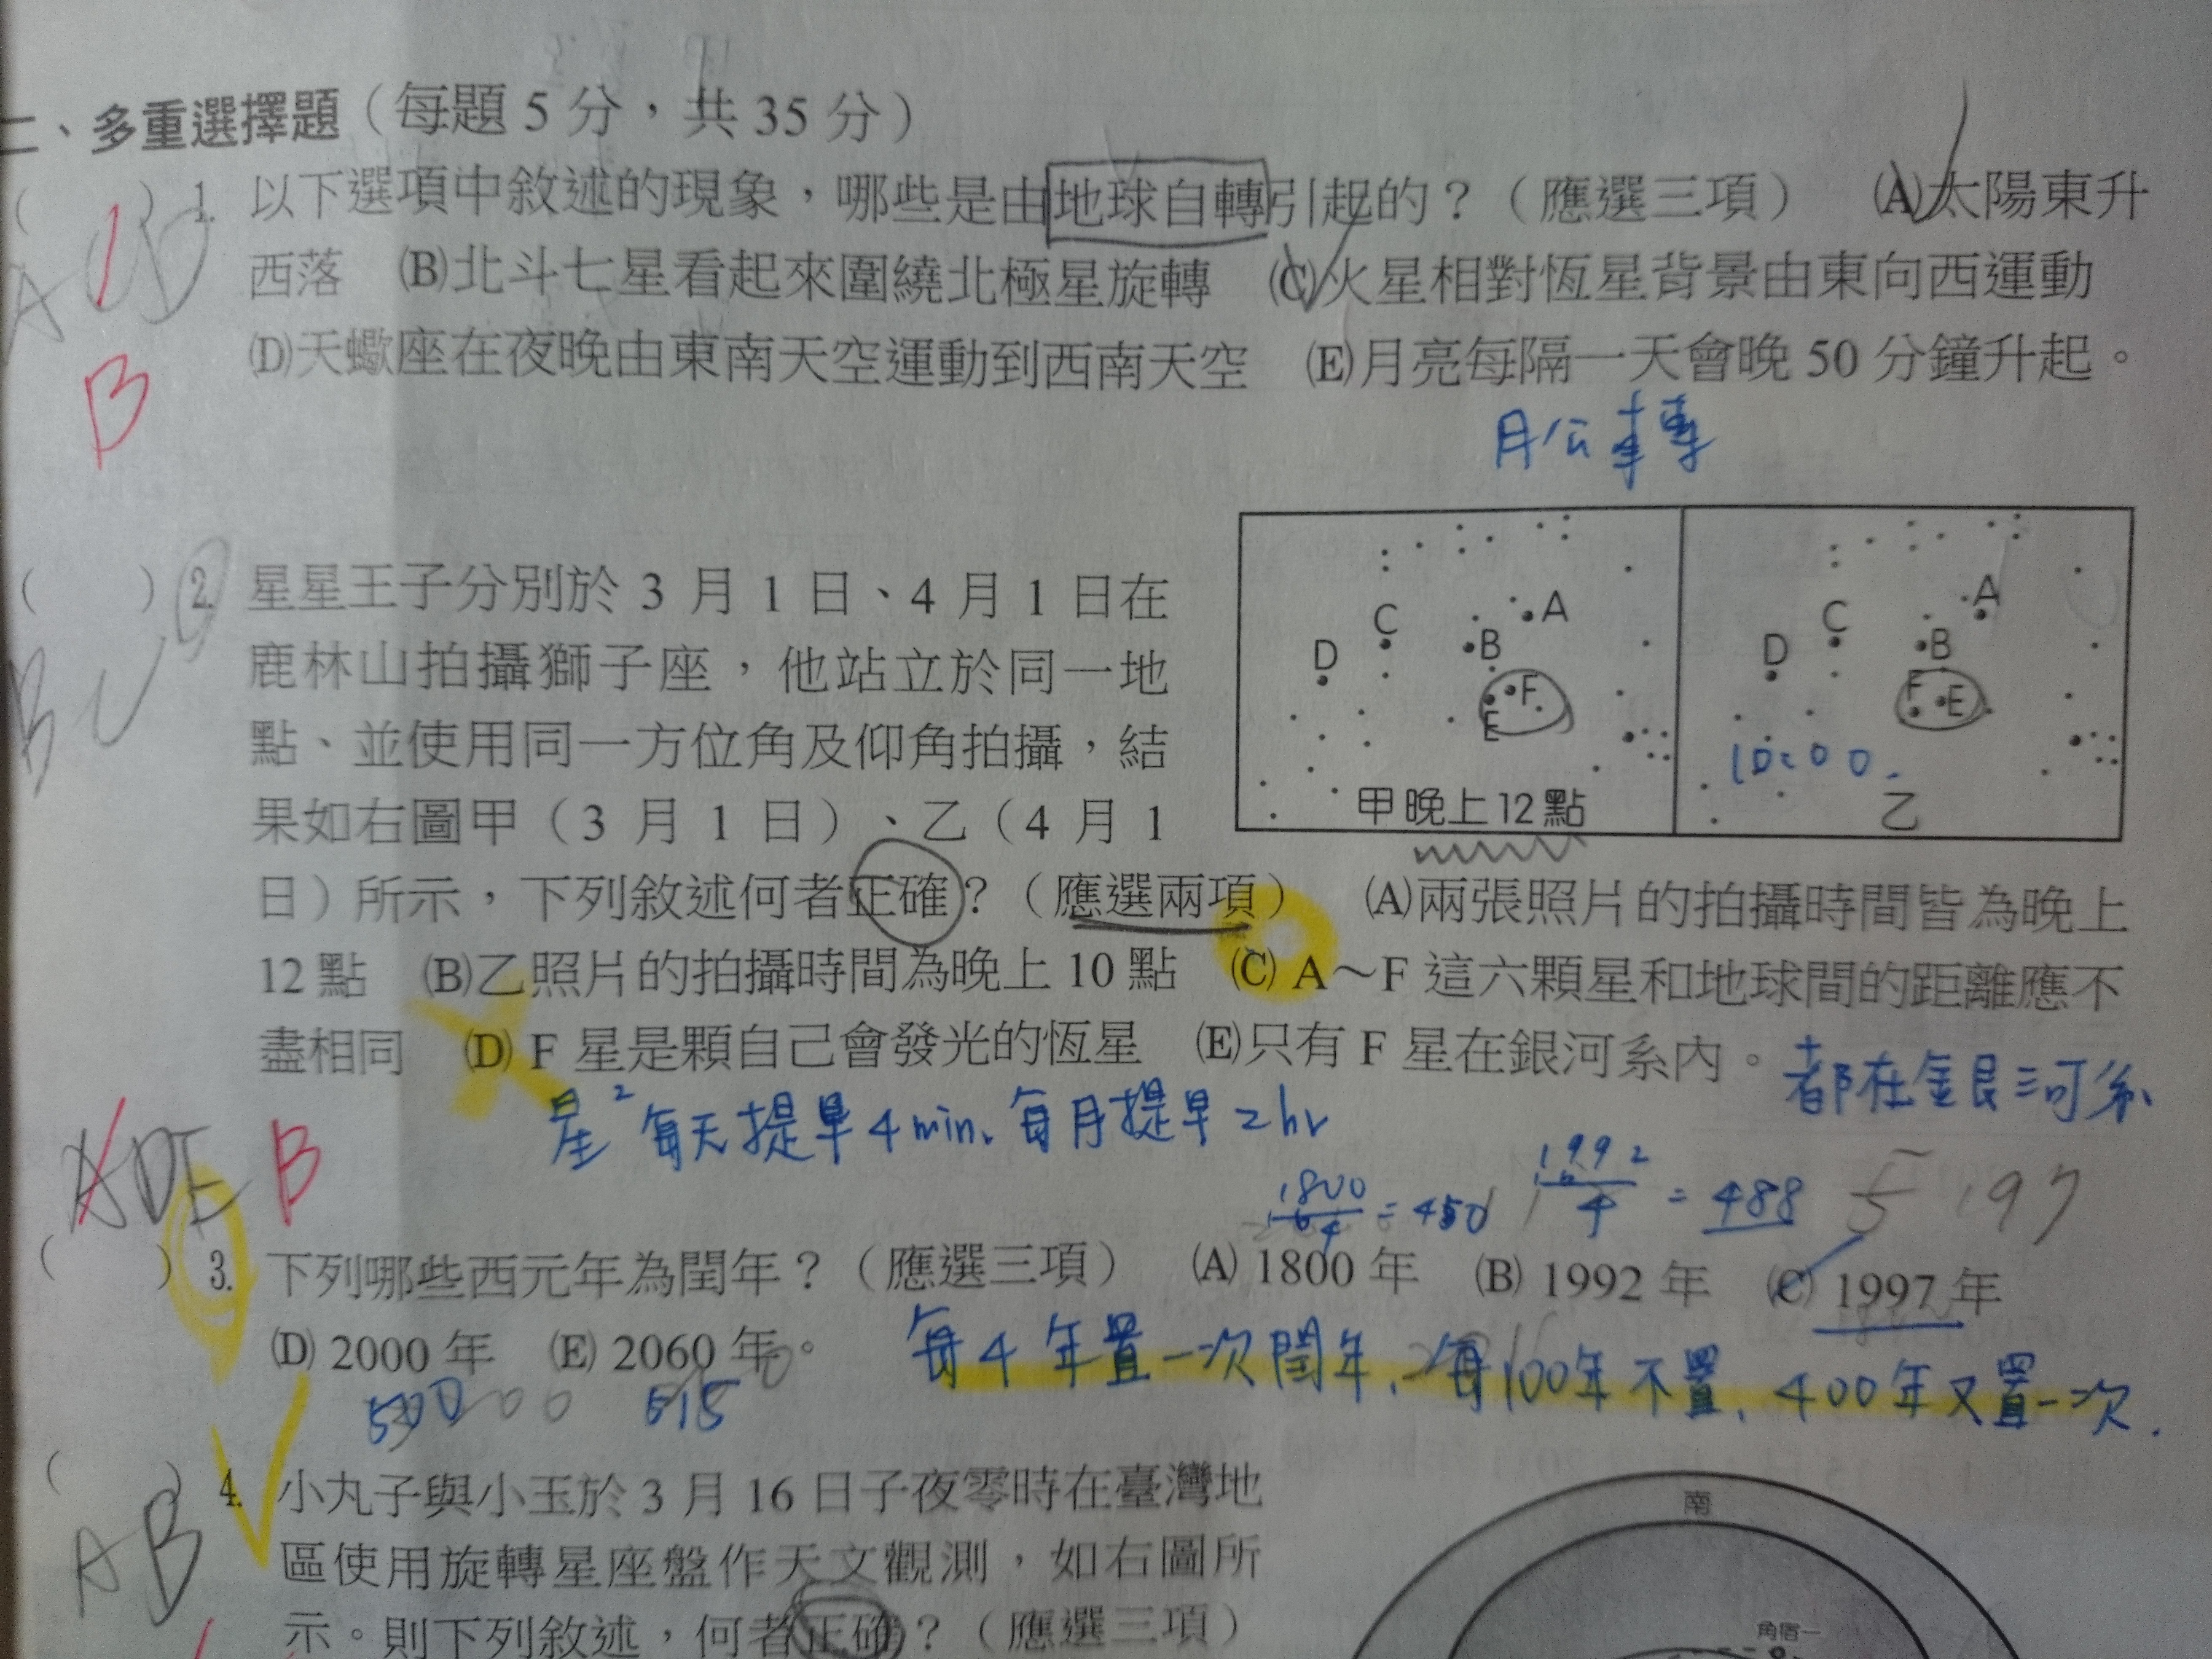 二、多重選擇題（每題 5 分，共 35 分）
( ) 1. 以下選項中敘述的現象，哪些是由地球自轉引起的？（應選三項） (A)太陽東升
西落 (B)北斗七星看起來圍繞北極星旋轉 (C)火星相對恆星背景由東向西運動
(D)天蠍座在夜晚由東南天空運動到西南天空 (E)月亮每隔一天會晚 50 分鐘升起。
A D
B
月公轉
( ) 2. 星星王子分別於 3 月 1 日、4 月 1 日在
鹿林山拍攝獅子座，他站立於同一地
點、並使用同一方位角及仰角拍攝，結
果如右圖甲（3 月 1 日）、乙（4 月 1
日）所示，下列敘述何者正確？（應選兩項） (A)兩張照片的拍攝時間皆為晚上
12 點 (B)乙照片的拍攝時間為晚上 10 點 (C) A～F 這六顆星和地球間的距離應不
盡相同 (D) F 星是顆自己會發光的恆星 (E)只有 F 星在銀河系內。
B C
A
B
C
D
E
F
甲晚上12點
A
B
C
D
F E
10:00
乙
都在銀河系
星² 每天提早4min、每月提早2hr
ADE B
1800/4 = 450
1992/4 = 488
5 197
( ) 3. 下列哪些西元年為閏年？（應選三項） (A) 1800 年 (B) 1992 年 (C) 1997 年
(D) 2000 年 (E) 2060 年。
每4年置一次閏年、每100年不置、400年又置一次.
500
515
( ) 4. 小丸子與小玉於 3 月 16 日子夜零時在臺灣地
區使用旋轉星座盤作天文觀測，如右圖所
示。則下列敘述，何者正確？（應選三項）
AB
南
角宿一